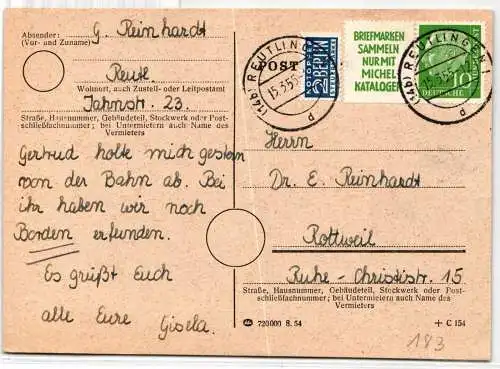 Absender:
(Vor- und Zuname)
G. Reinhardt
Reutl.
Wohnort, auch Zustell- oder Leitpostamt
Jahnstr. 23.
Straße, Hausnummer, Gebäudeteil, Stockwerk oder Post-
schließfachnummer; bei Untermietern auch Name des
Vermieters
Gertrud holte mich gestern
von der Bahn ab. Bei
ihr haben wir noch
Borden erfunden.
Es grüßt Euch
alle Eure Gisela.
POST
NOTOPFER
2 BERLIN
STEUERMARKE
BRIEFMARKEN
SAMMELN
NUR MIT
MICHEL
KATALOGEN
10
DEUTSCHE
BUNDESPOST
(14b) REUTLINGEN 1
15.3.55
d
(14b) REUTLINGEN 1
15.3.55
d
Herrn
Dr. E. Reinhardt
Rottweil
Ruhe-Christistr. 15
Straße, Hausnummer, Gebäudeteil, Stockwerk oder Post-
schließfachnummer; bei Untermietern auch Name des
Vermieters
720000 8. 54
+ C 154
183